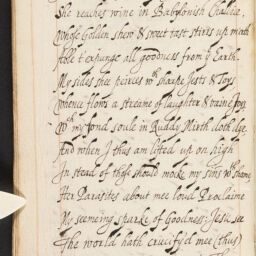 She reaches wine in Babylonish Challice,
Whose Golden shew & sweet tast stirrs up mirth
Able t'expunge all goodness from yͤ Earth.
My sides shee peirces wͭʰ sharpe Jests & Toys
Whence flows a streame of laughter & vaine Joys
Wͨʰ my fond soule in Ruddy Mirth doth dye.
And when I thus am lifted up on high
In stead of those should mock my sins wͭʰ shame
Her Parasites about mee loud Proclaime
My seemeing sparke of Goodness; Jesu see
The world hath crucify'd mee (thus)